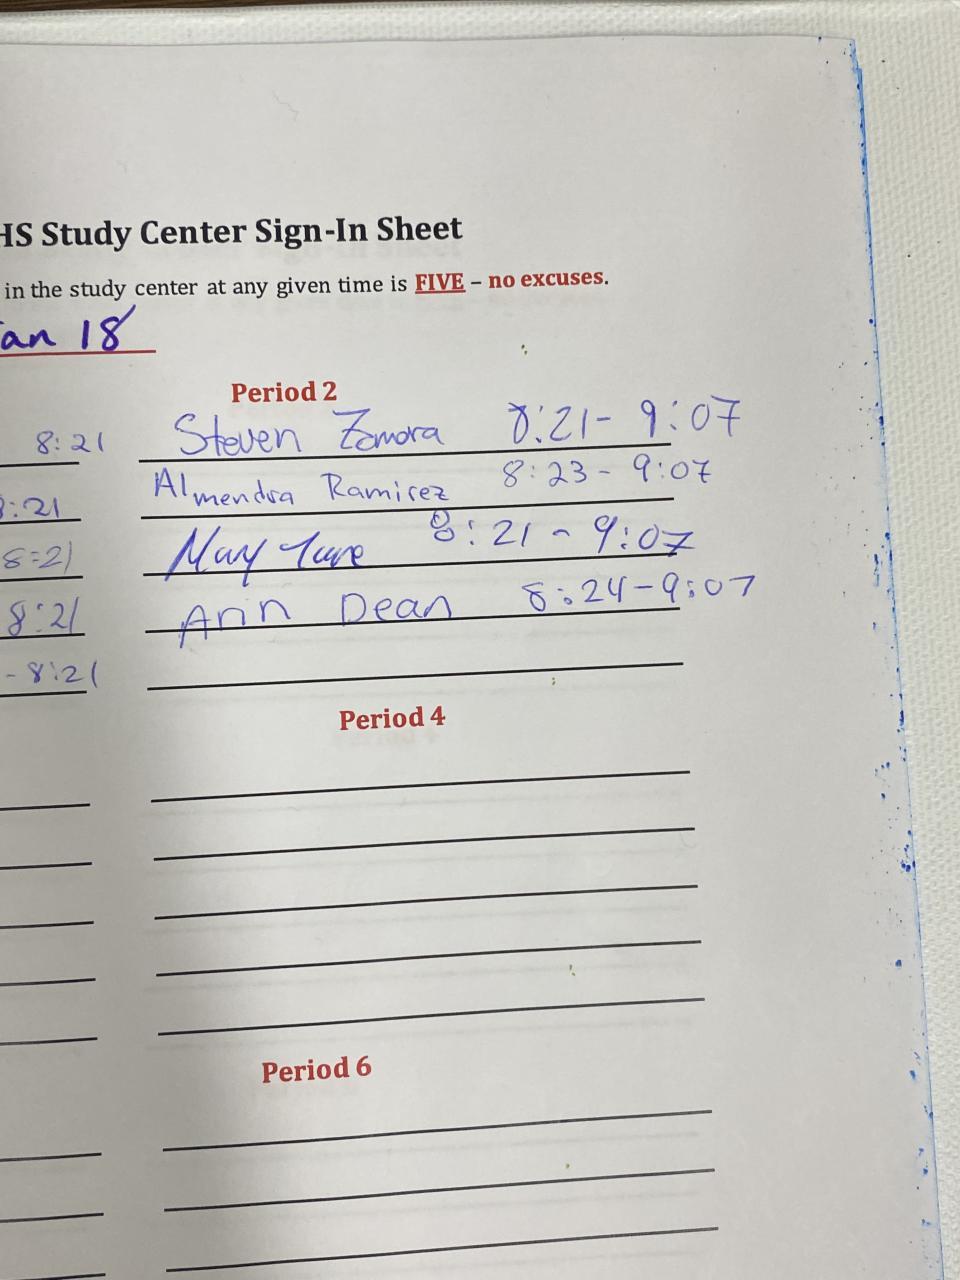 HS Study Center Sign-In Sheet
in the study center at any given time is FIVE – no excuses.
an 18
Period 2
8:21 Steven Zamora 8:21- 9:07
8:21 Almendra Ramirez 8:23 - 9:07
8:21 May 8:21 - 9:07
8:21 Ann Dean 8:24-9:07
- 8:21
Period 4
Period 6